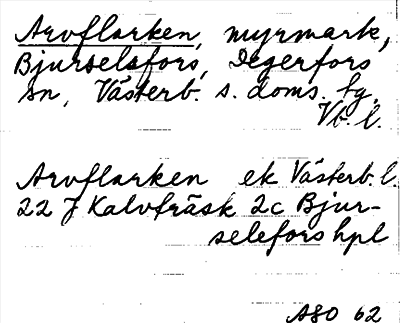 Arvflarken, myrmark,
Bjurselsfors, Degerfors
sn, Västerb. s. doms. fg.
Vb. l.
Arvflarken ek Västerb. l.
22 J Kalvträsk 2c Bjur-
selefors hpl
ASO 62